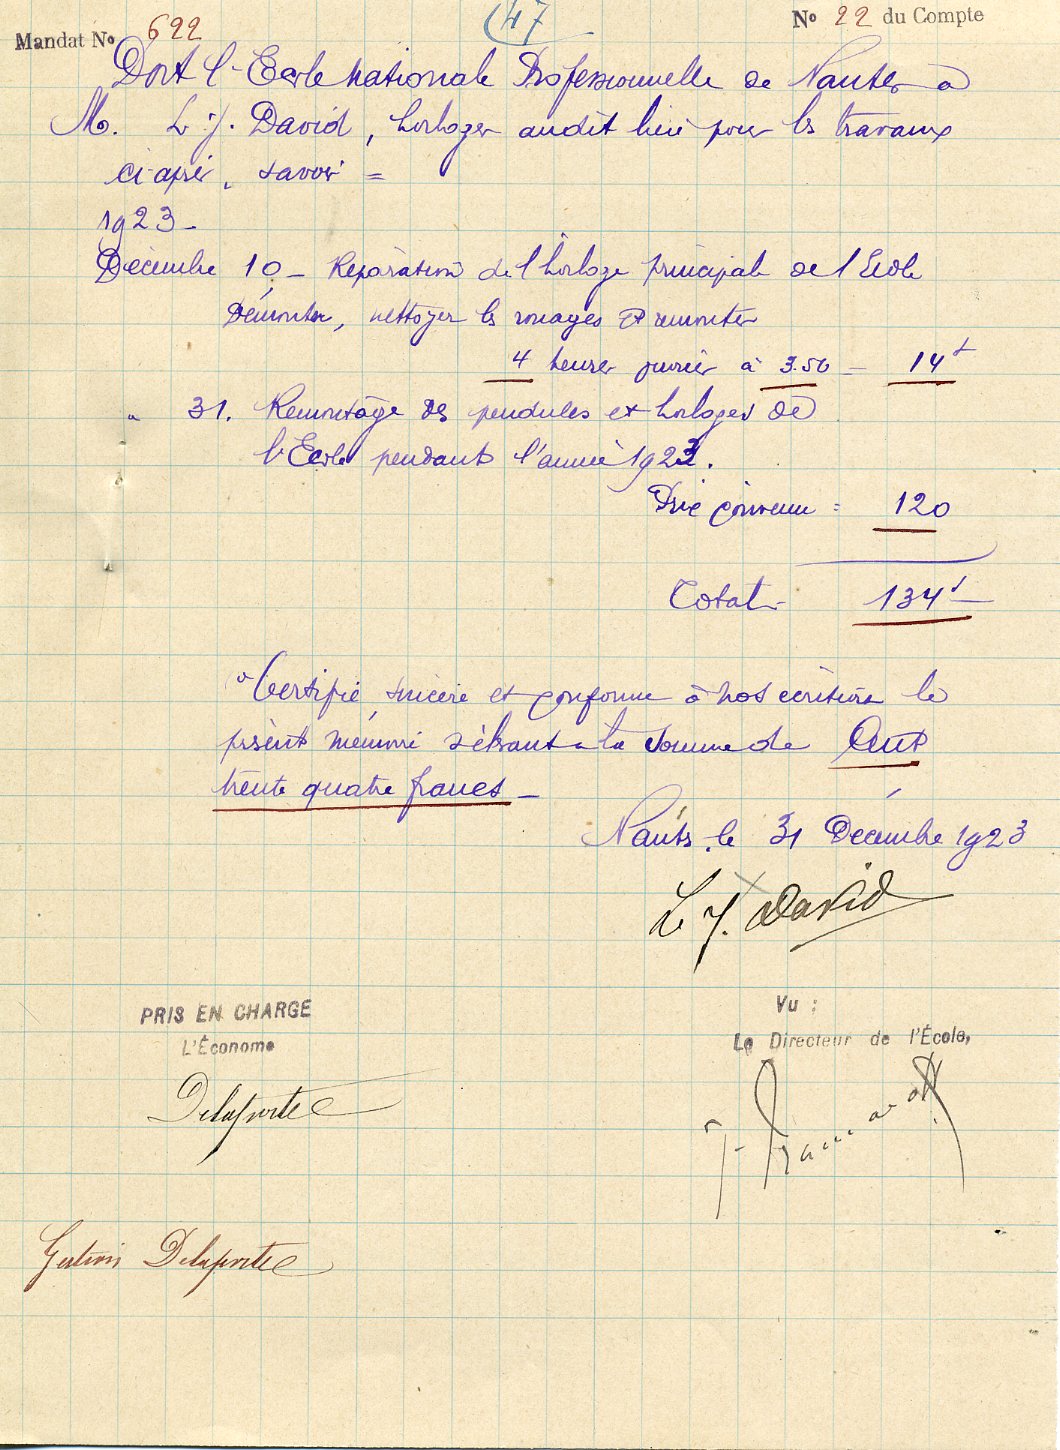 47
Mandat No 622
No 22 du Compte
Doit l'Ecole Nationale Professionnelle de Nantes à
M. L. J. David, horloger audit lieu pour les travaux
ci-après, savoir =
1923 -
Décembre 10 - Réparation de l'horloge principale de l'Ecole
Démonter, nettoyer les rouages et remonter
4 heures ouvrier à 3.50 - 14f
" 31. Remontage des pendules et horloges de
l'Ecole pendant l'année 1923.
Prix convenu = 120
Total - 134f
Certifié sincère et conforme à nos écritures le
présent mémoire s'élevant à la somme de Cent
trente quatre francs -
Nantes, le 31 Décembre 1923
L. J. David
PRIS EN CHARGE
L'Économe
Delaporte
Vu :
Le Directeur de l'École,
Gestion Delaporte